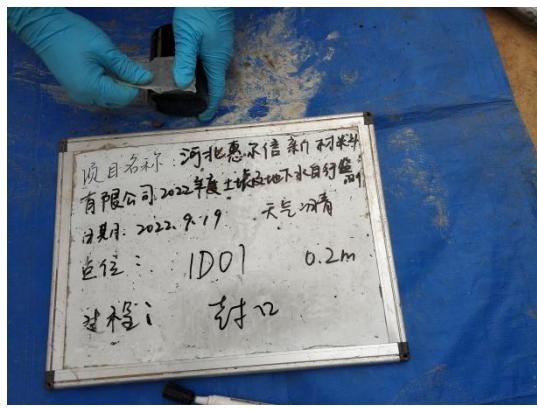 项目名称：河北惠尔信新材料
有限公司2022年度土壤及地下水自行监测
日期：2022.9.19 天气：晴
点位： 1D01 0.2m
过程： 封口